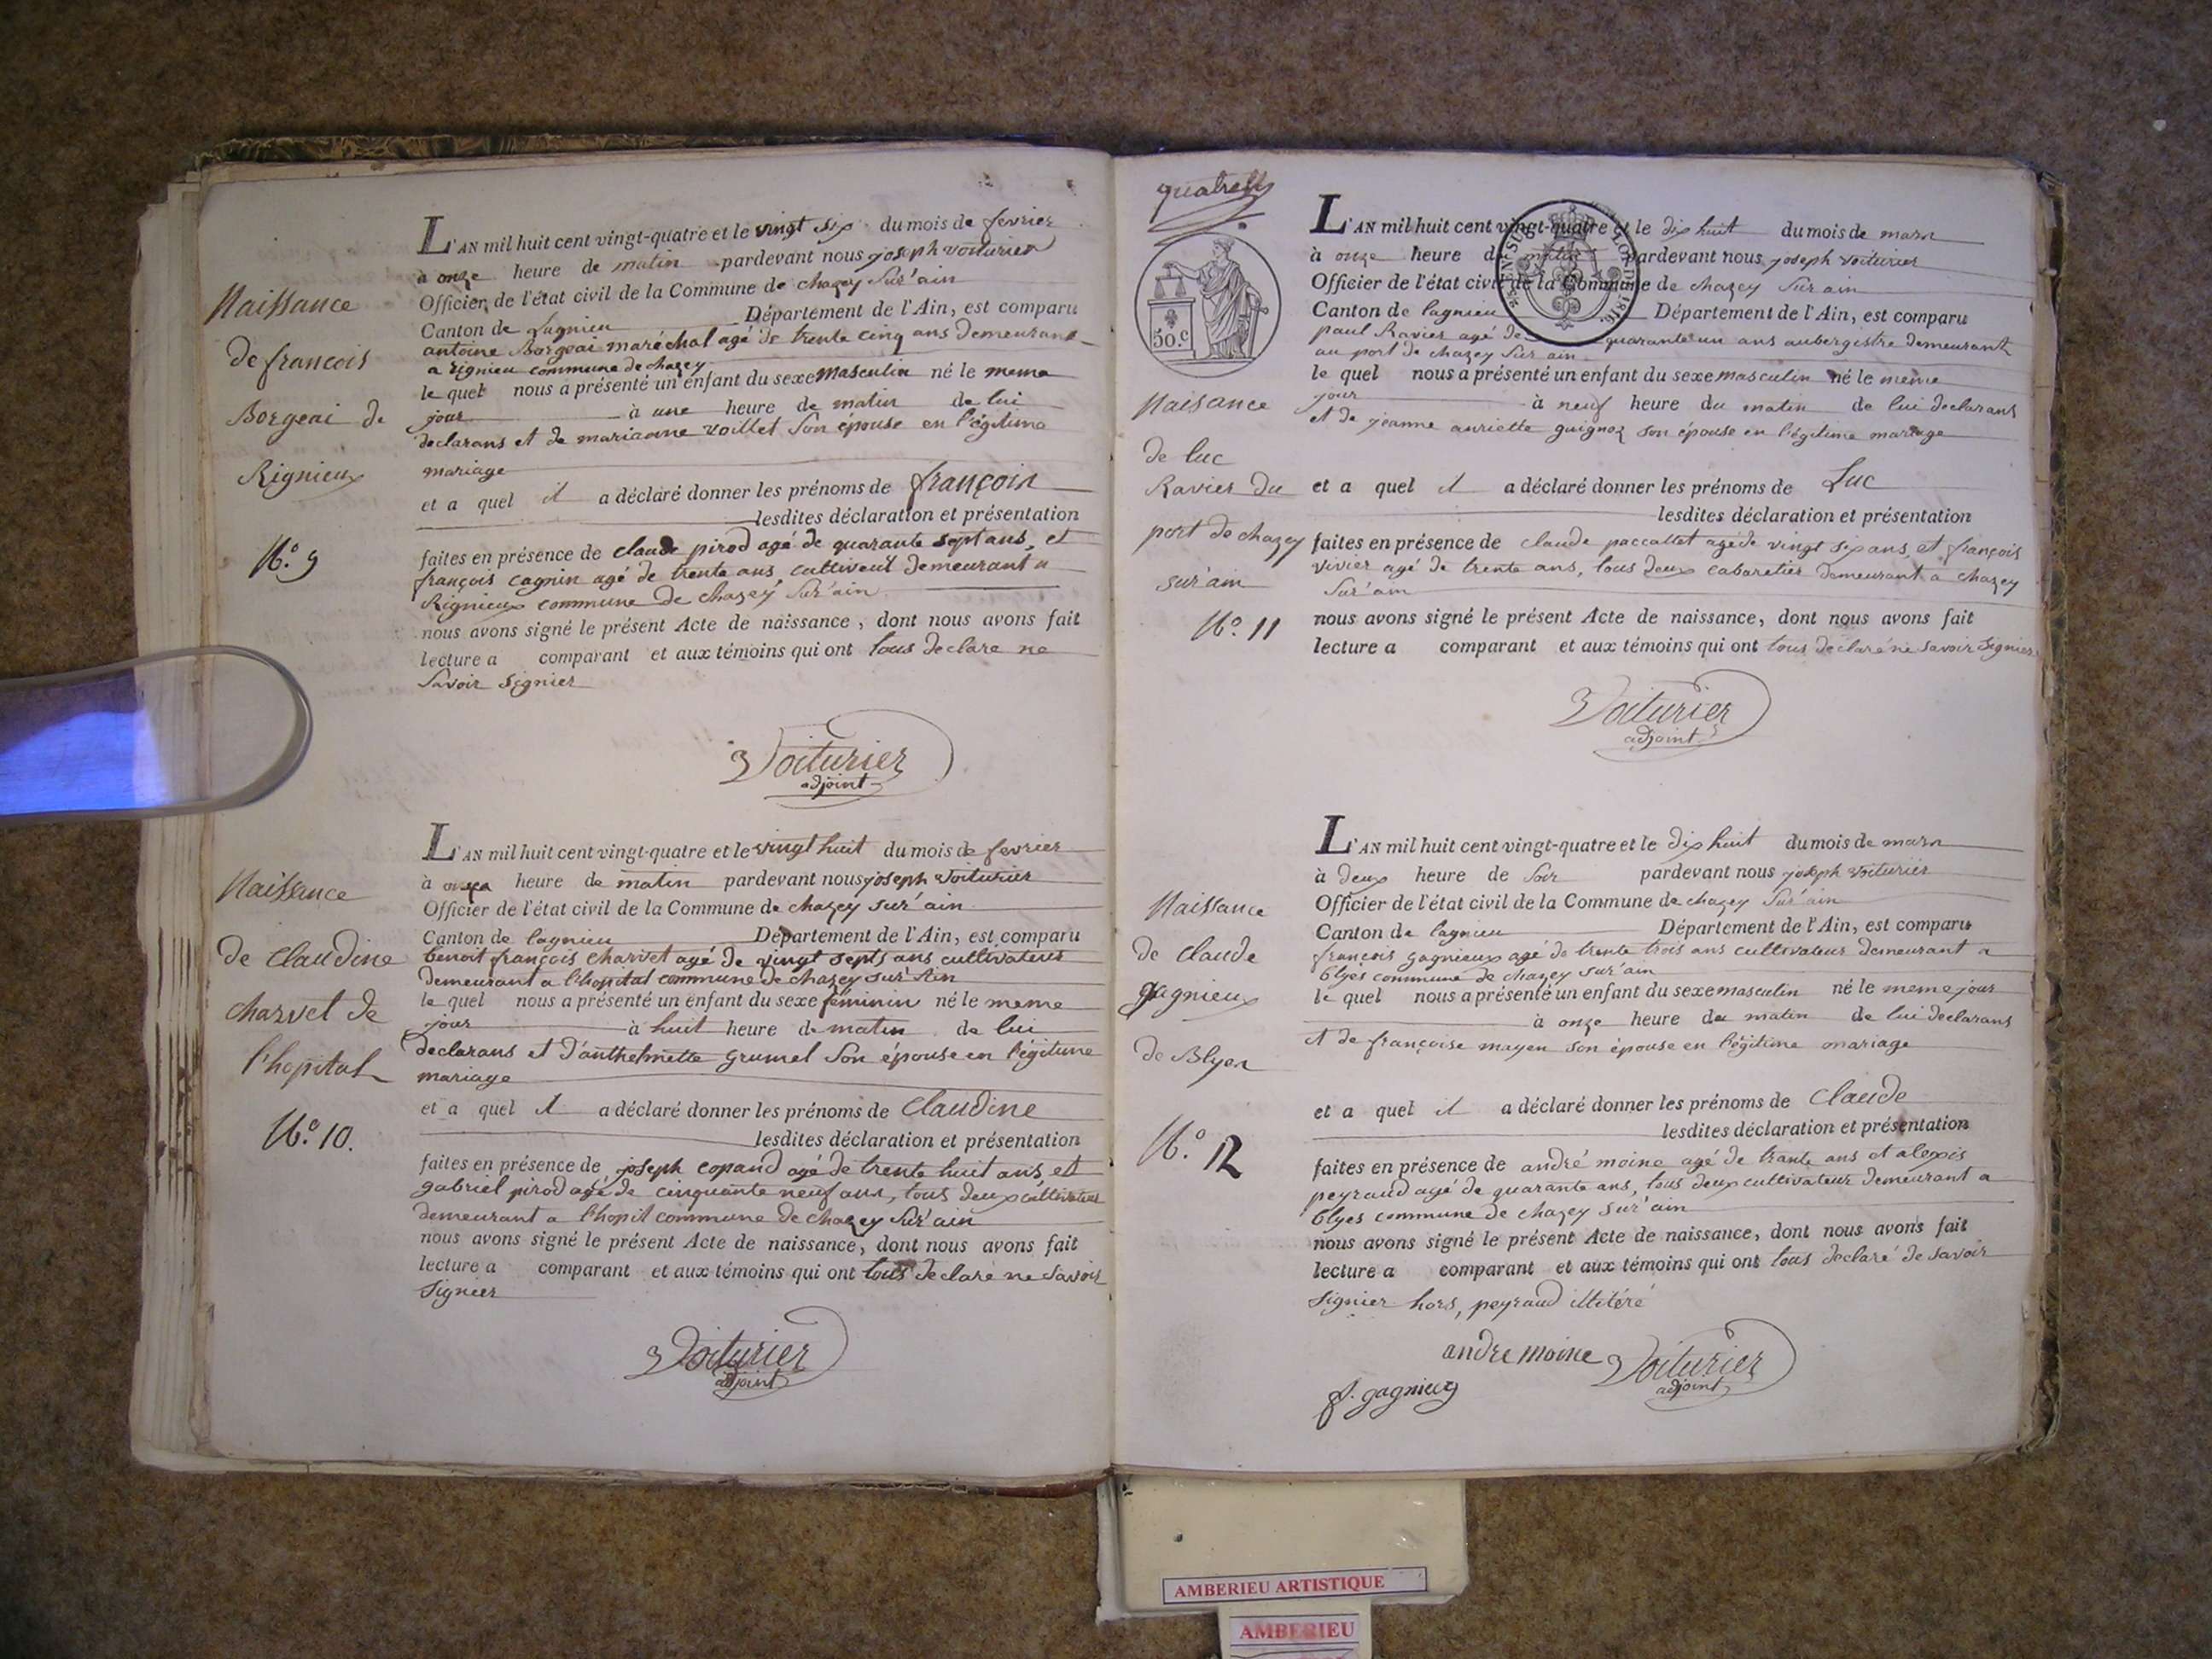 Naissance
de françois
Borgeai de
Rignieux
N.º 9
L'AN mil huit cent vingt-quatre et le vingt six du mois de fevrier
à onze heure de matin pardevant nous joseph voiturier
Officier de l'état civil de la Commune de chazey Sur'ain
Canton de Lagnieu Département de l'Ain, est comparu
antoine Borgeai maréchal agé de trente cinq ans demeurant
a rignieu commune de chazey
le quel nous a présenté un enfant du sexe masculin né le meme
jour à une heure de matin de lui
declarans et de marianne voillet Son épouse en légitime
mariage
et a quel il a déclaré donner les prénoms de françois
lesdites déclaration et présentation
faites en présence de claude pirod agé de quarante sept ans, et
françois cagnin agé de trente ans, demeurant a
Rignieux commune de chazey Sur'ain
nous avons signé le présent Acte de naissance, dont nous avons fait
lecture a comparant et aux témoins qui ont tous declare ne
Savoir signier
Voiturier
adjoint
Naissance
de claudine
charvet de
l'hopital
N.º 10.
L'AN mil huit cent vingt-quatre et le vingt huit du mois de fevrier
à onze heure de matin pardevant nous joseph voiturier
Officier de l'état civil de la Commune de chazey sur'ain
Canton de lagnieu Département de l'Ain, est comparu
benoit françois charvet agé de vingt septs ans cultivateur
demeurant a l'hopital commune de chazey sur'Ain
le quel nous a présenté un enfant du sexe féminin né le meme
jour à huit heure de matin de lui
declarans et d'anthelmette grumel Son épouse en légitime
mariage
et a quel il a déclaré donner les prénoms de Claudine
lesdites déclaration et présentation
faites en présence de joseph copand agé de trente huit ans, et
gabriel pirod agé de cinquante neuf ans, tous deux cultivateur
demeurant a l'hopil commune de chazey Sur'ain
nous avons signé le présent Acte de naissance, dont nous avons fait
lecture a comparant et aux témoins qui ont tous declaré ne Savoir
Signier
Voiturier
adjoint
quatre
50.c
Naisance
de luc
Ravier du
port de chazey
sur'ain
N.º 11
L'AN mil huit cent vingt-quatre et le dix huit du mois de mars
à onze heure de matin pardevant nous joseph voiturier
Officier de l'état civil de la Commune de chazey Sur ain
Canton de lagnieu Département de l'Ain, est comparu
paul Ravier agé de quarante un ans aubergistre demeurant
au port de chazey Sur ain
le quel nous a présenté un enfant du sexe masculin né le meme
jour à neuf heure du matin de lui declarans
et de jeanne auriette guignoz son épouse en légitime mariage
et a quel il a déclaré donner les prénoms de Luc
lesdites déclaration et présentation
faites en présence de claude paccallet agé de vingt six ans, et françois
vivier agé de trente ans, tous deux cabaretier demeurant a chazey
Sur'ain
nous avons signé le présent Acte de naissance, dont nous avons fait
lecture a comparant et aux témoins qui ont tous déclaré ne savoir Signier
Voiturier
adjoint
Naissance
de claude
gagnieux
de Blyes
N.º 12
L'AN mil huit cent vingt-quatre et le dix huit du mois de mars
à deux heure de Soir pardevant nous joseph voiturier
Officier de l'état civil de la Commune de chazey Sur'ain
Canton de lagnieu Département de l'Ain, est comparu
françois gagnieux agé de trente trois ans cultivateur demeurant a
blyes commune de chazey sur'ain
le quel nous a présenté un enfant du sexe masculin né le meme jour
à onze heure du matin de lui declarans
et de françoise mayen son épouse en légitime mariage
et a quel il a déclaré donner les prénoms de Claude
lesdites déclaration et présentation
faites en présence de andré moine agé de trante ans et alexis
peyraud agé de quarante ans, tous deux cultivateur demeurant a
blyes commune de chazey sur'ain
nous avons signé le présent Acte de naissance, dont nous avons fait
lecture a comparant et aux témoins qui ont tous declaré de savoir
Signier hors, peyraud illitéré
andre moine Voiturier
adjoint
f. gagnieux
AMBERIEU ARTISTIQUE
AMBERIEU